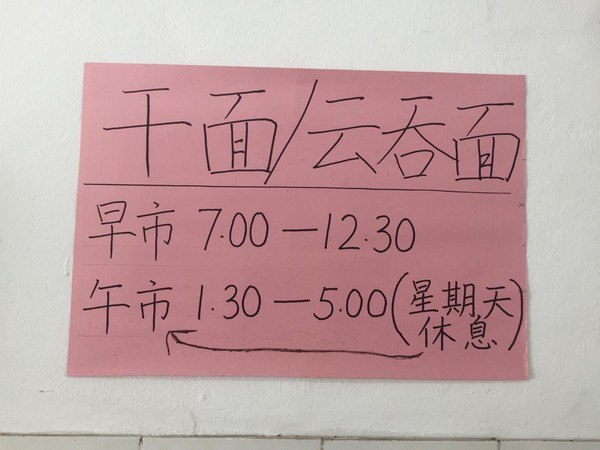 干面/云吞面
早市 7.00—12.30
午市 1.30—5.00(星期天
休息)